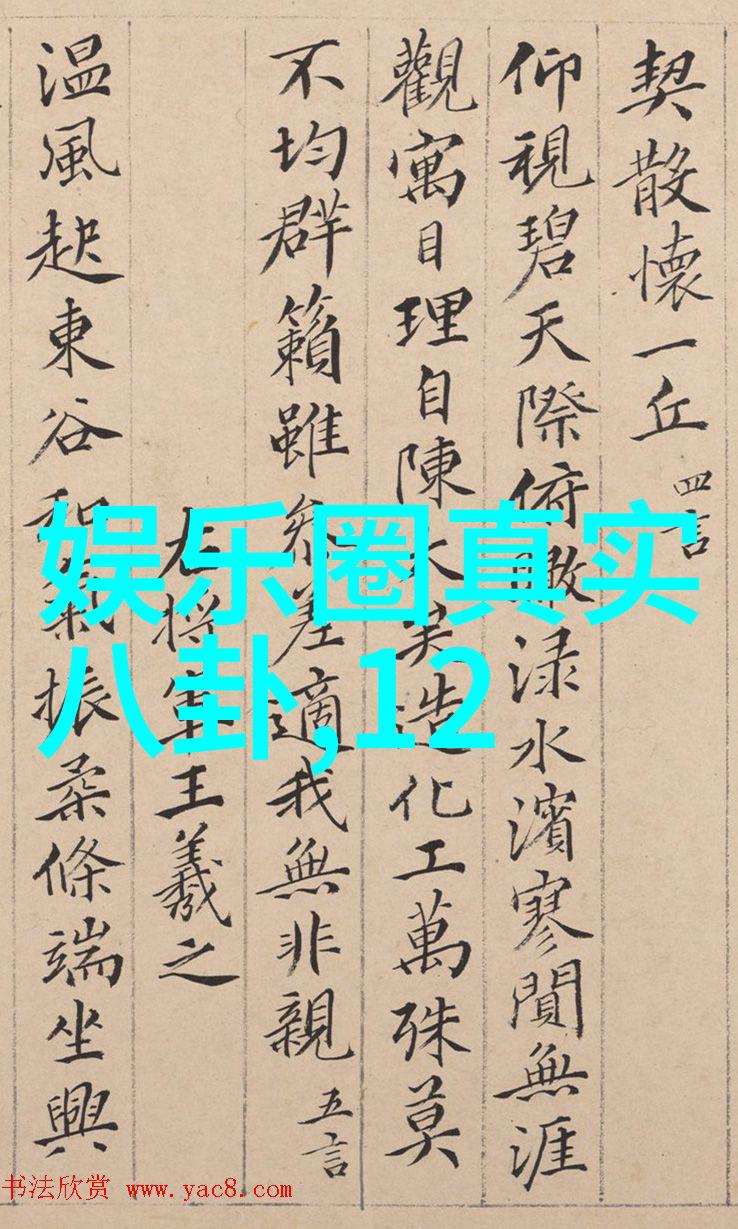 契散懷一丘 四言
仰視碧天際俯瞰渌水濱寥閴無涯
觀寓目理自陳大矣造化工萬殊莫
不均群籟雖參差適我無非親 五言
右將軍王羲之
温風起東谷和氣振柔條端坐興
娱乐圈真实
八卦,12
书法欣赏 www.yac8.com